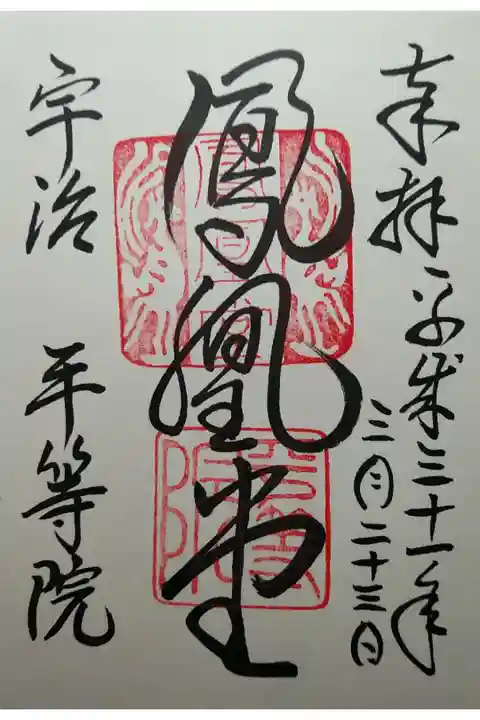 奉拝 平成三十一年
三月二十三日
鳳凰堂
宇治 平等院
鳳凰堂